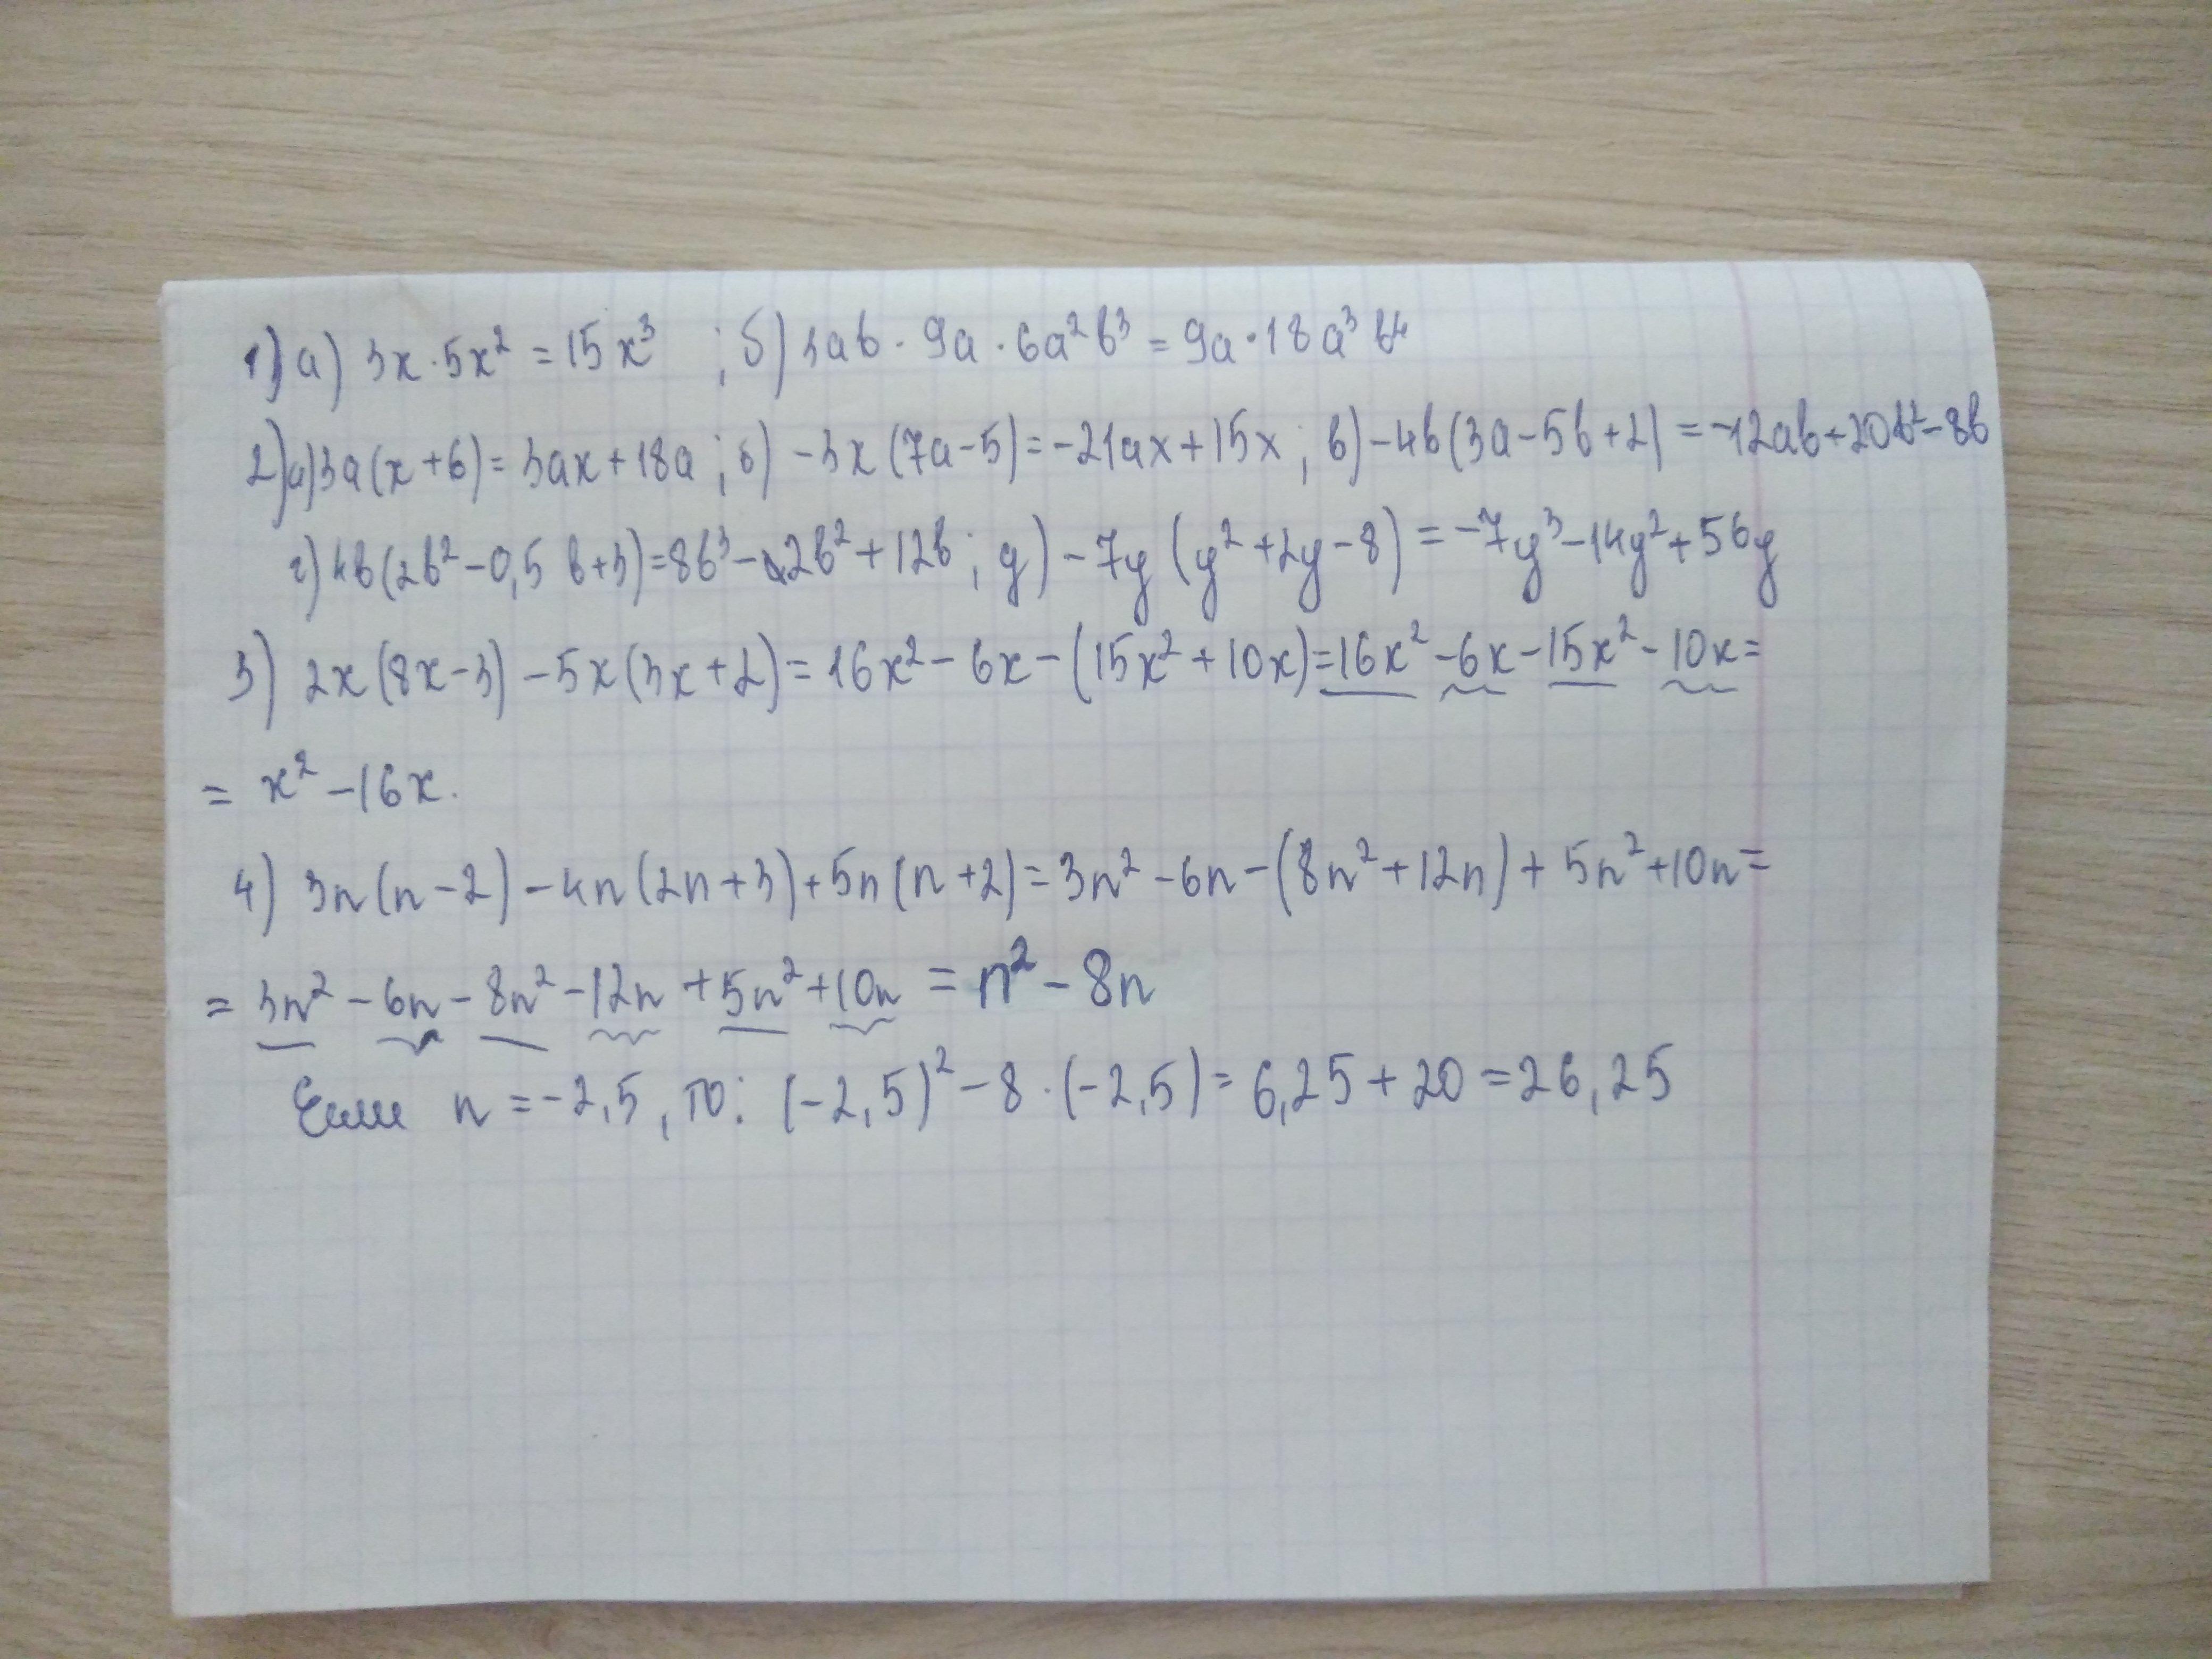 1) а) 3x·5x² = 15x³ ; б) 3ab · 9a · 6a²b³ = 9a·18a³b⁴
2) а) 3a(x+6) = 3ax+18a ; б) -3x(7a-5) = -21ax+15x ; в) -4b(3a-5b+2) = -12ab+20b²-8b
г) 4b(2b²-0,5b+3) = 8b³-2b²+12b ; д) -7y(y²+2y-8) = -7y³-14y²+56y
3) 2x(8x-3)-5x(3x+2) = 16x²-6x-(15x²+10x) = 16x²-6x-15x²-10x =
= x²-16x.
4) 3n(n-2)-4n(2n+3)+5n(n+2) = 3n²-6n-(8n²+12n)+5n²+10n =
= 3n²-6n-8n²-12n+5n²+10n = n²-8n
Если n = -2,5, то: (-2,5)²-8·(-2,5) = 6,25+20 = 26,25